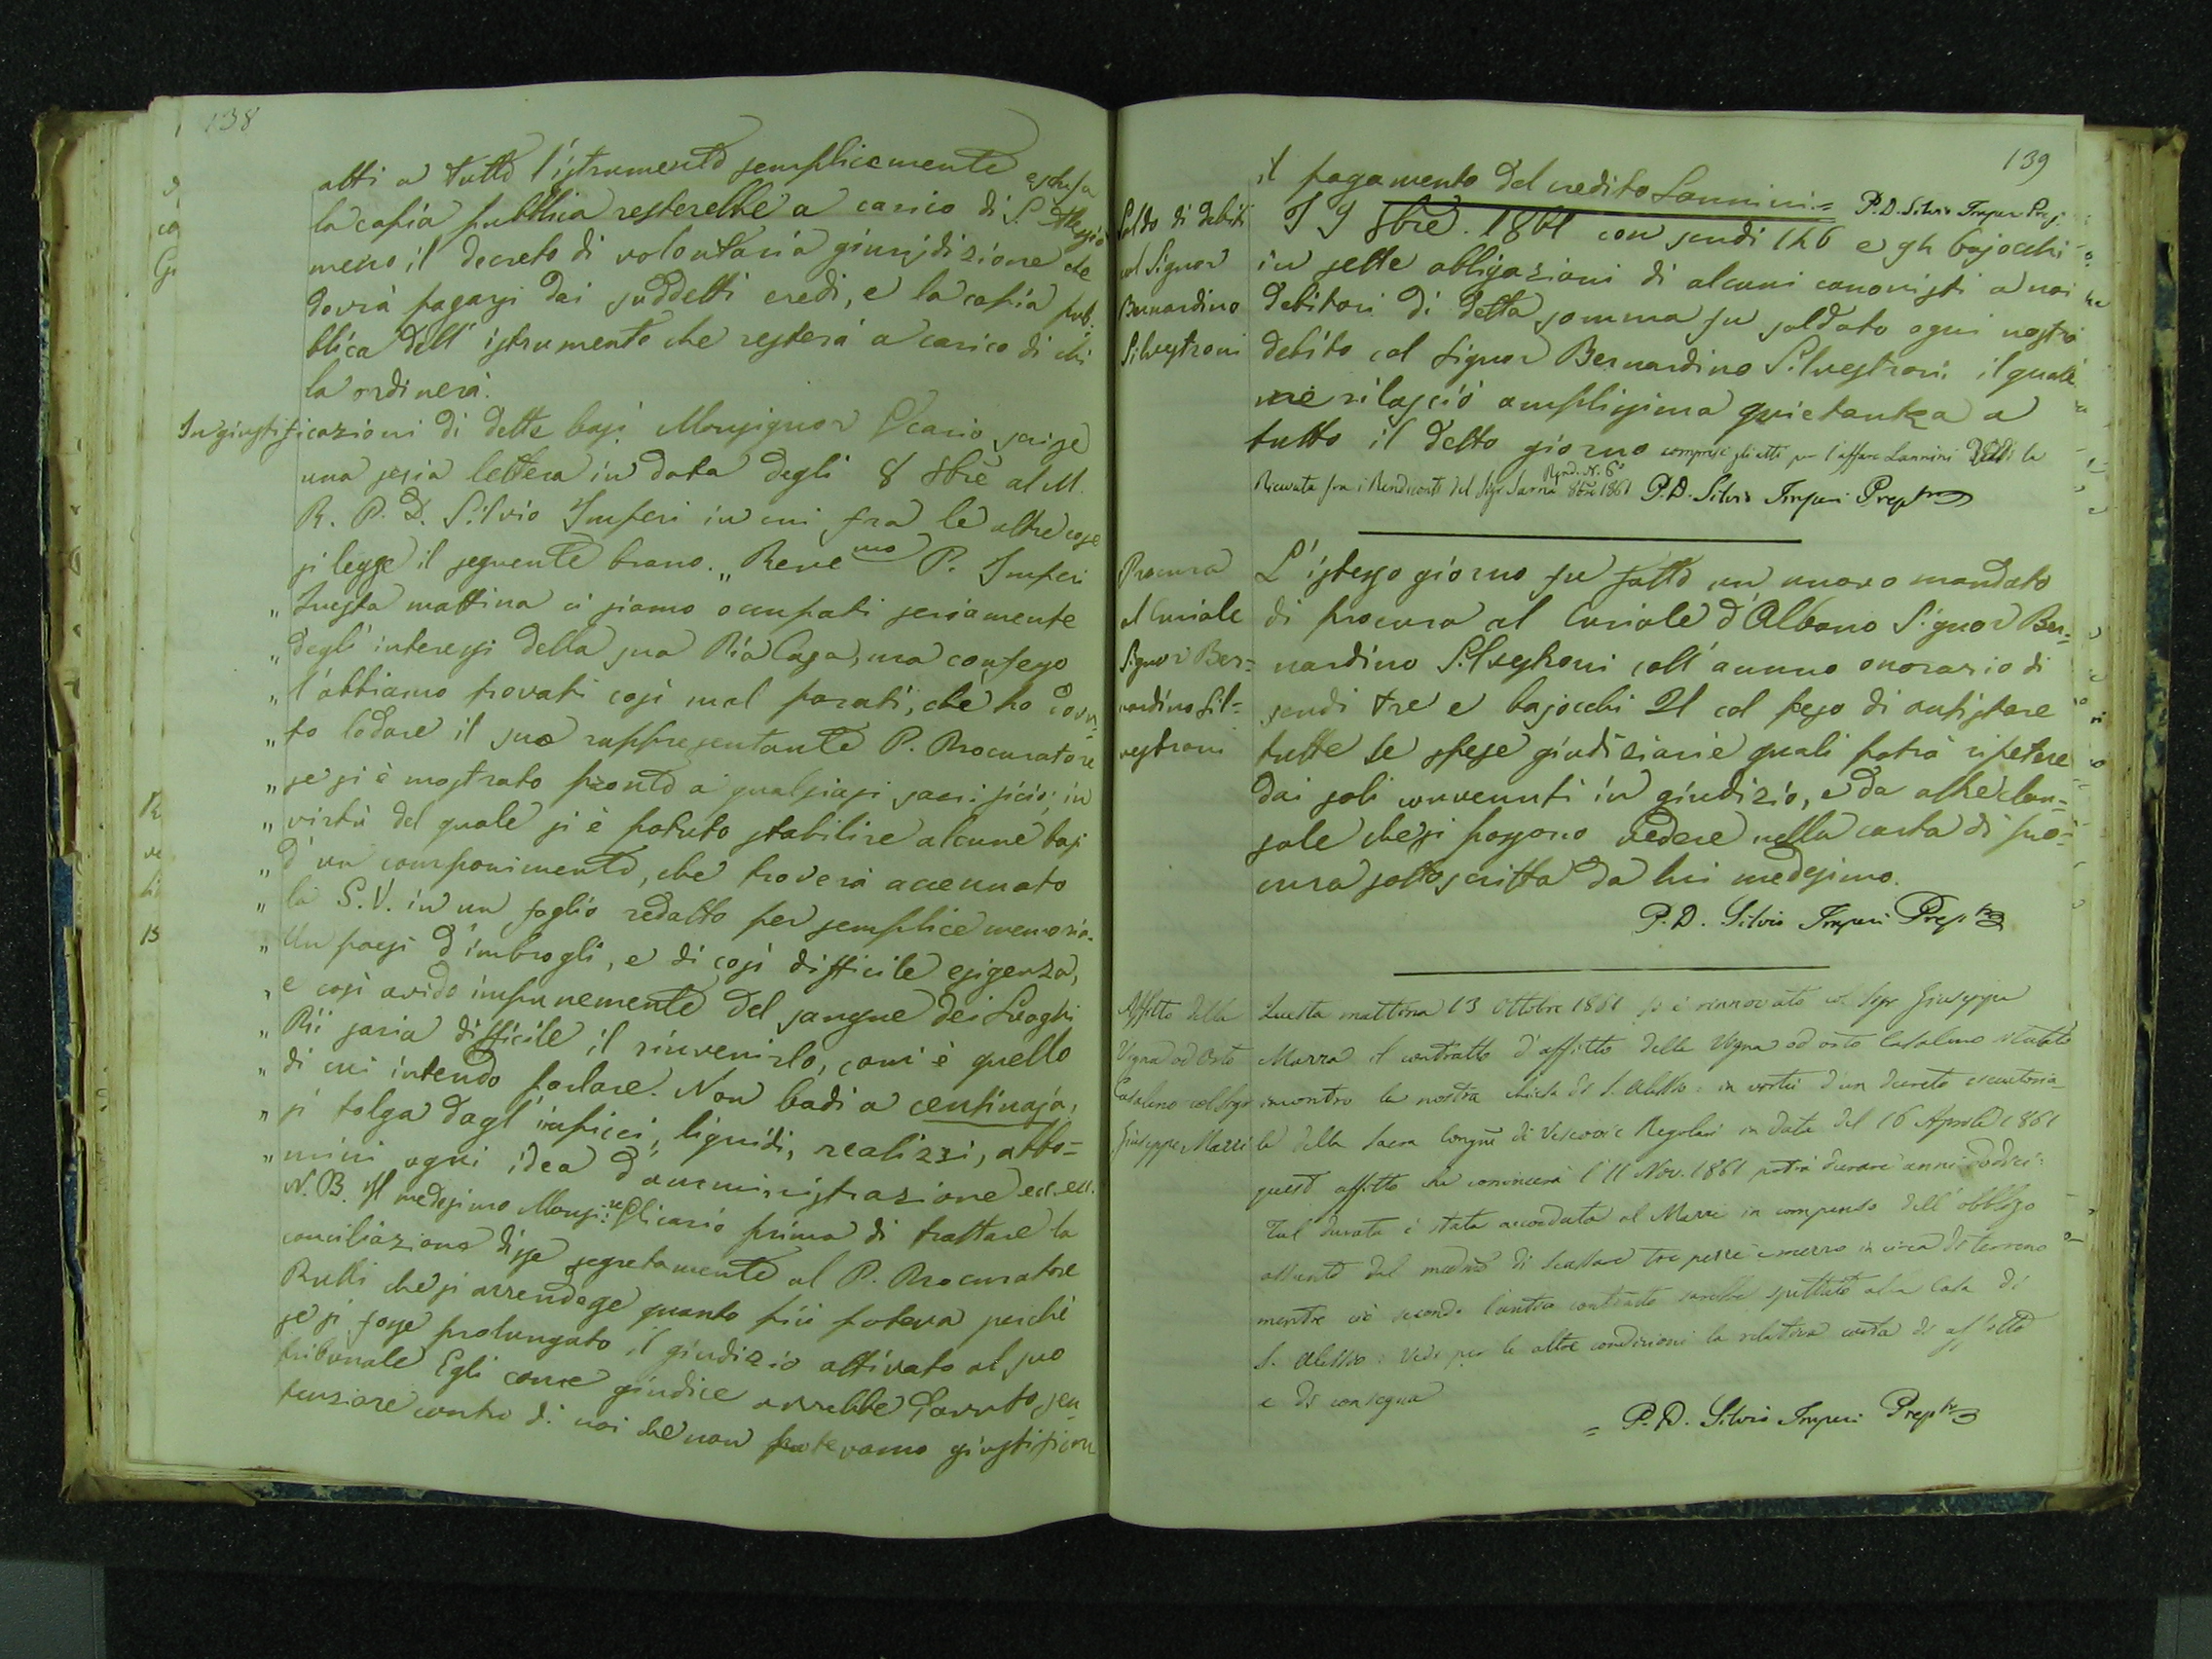 138
atti a tutto l'istrumento semplicemente esclusa
la copia pubblica resterebbe a carico di S. Alessio
meno il decreto di volontaria giurisdizione che
dovrà pagarsi dai suddetti eredi, e la copia pub.
blica dell' istrumento che resterà a carico di chi
la ordinerà.
In giustificazioni di dette basi Monsignor Vicario scrisse
una seria lettera in data degli 8 8bre al M.
R. P. D. Silvio Imperi in cui fra le altre cose
si legge il seguente brano. „ Reve mo P. Imperi
„ Questa mattina ci siamo occupati seriamente
„ degli interessi della sua Pia Casa, ma confesso
„ l'abbiamo trovati così mal parati, che ho dovu-
„ to lodare il suo rappresentante P. Procuratore
„ se si è mostrato pronto a qualsiasi sacrificio; in
„ virtù del quale si è potuto stabilire alcune basi
„ d'un componimento, che troverà accennato
„ la S.V. in un foglio redatto per semplice memoria.
„ Un paesi d'imbrogli, e di così difficile esigenza,
„ e così avido impunemente del sangue dei Luoghi
„ Pii saria difficile il rinvenirlo, com'è quello
„ di cui intendo parlare. Non badi a centinaja,
„ si tolga dagl'impicci, liquidi, realizzi, abbo-
„ mini ogni idea d'amministrazione ecc. ecc.
N.B. Il medesimo Monsi:re Vicario prima di trattare la
conciliazione disse segretamente al P. Procuratore
Rulli che si arrendesse quanto più poteva perché
se si fosse prolungato il giudizio attivato al suo
tribunale Egli come giudice avrebbe dovuto sen-
tenziare contro di noi che non potevamo giustificare
139
il pagamento del credito Lannini = P. D. Silvio Imperi Prep.
Saldo di debiti
col Signor
Bernardino
Silvestroni
I 9 8bre. 1861 con scudi 146 e 94 bajocchi
in sette obbligazioni di alcuni canonisti a noi
debitori di detta somma fu saldato ogni nostro
debito col Signor Bernardino Silvestroni il quale
ne rilasciò amplissima quietanza a
tutto il detto giorno compresi gli atti per l'affare Lannini Vedi la
Ricevuta fra i Rendiconti del Sigr Sarna Rend. N. 6° 8bre 1861 P. D. Silvio Imperi Prepto
Procura
al Curiale
Signor Ber=
nardino Sil=
vestroni
L'istesso giorno fu fatto un nuovo mandato
di procura al Curiale d'Albano Signor Ber=
nardino Silvestroni coll' annuo onorario di
scudi tre e bajocchi 21 col peso di antistare
tutte le spese giudiziarie quali potrà ripetere
dai soli convenuti in giudizio, e da altre clau=
sole che si possono vedere nella carta di pro=
cura sottoscritta da lui medesimo.
P. D. Silvio Imperi Prepto
Affitto della
Vigna ad Orto
Casaleno col Sigr
Giuseppe Marri
Questa mattina 13 Ottobre 1861 si è rinnovato col Sigr Giuseppe
Marra il contratto d'affitto della Vigna ad orto Casaleno situata
incontro la nostra chiesa di S. Alessio: in virtù d'un decreto esecutoria=
le della Sacra Congne di Vescovi e Regolari in data del 16 Aprile 1861
quest affitto che comincerà l'11 Nov. 1861 potrà durare anni dodici:
Tal durata è stata accordata al Marri in compenso dell'obbligo
assunto dal medmo di scassare tre pezze e mezzo in circa di terreno
mentre ciò secondo l'antico contratto sarebbe spettato alla Casa di
S. Alessio: Vedi per le altre condizioni la relativa carta di affitto
e di consegna
= P. D. Silvio Imperi Prepto